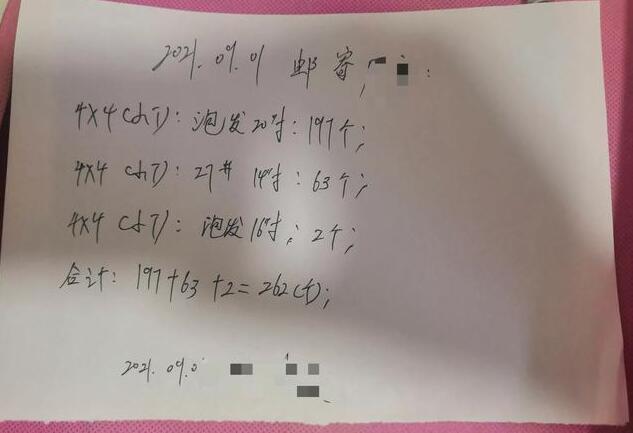 2021.09.01 邮寄
4X4 (小T): 泡发20寸: 197个;
4X4 (小T): 27# 14寸: 63个;
4X4 (小T): 泡发16寸; 2个;
合计: 197+63+2=262(个);
2021.09.0